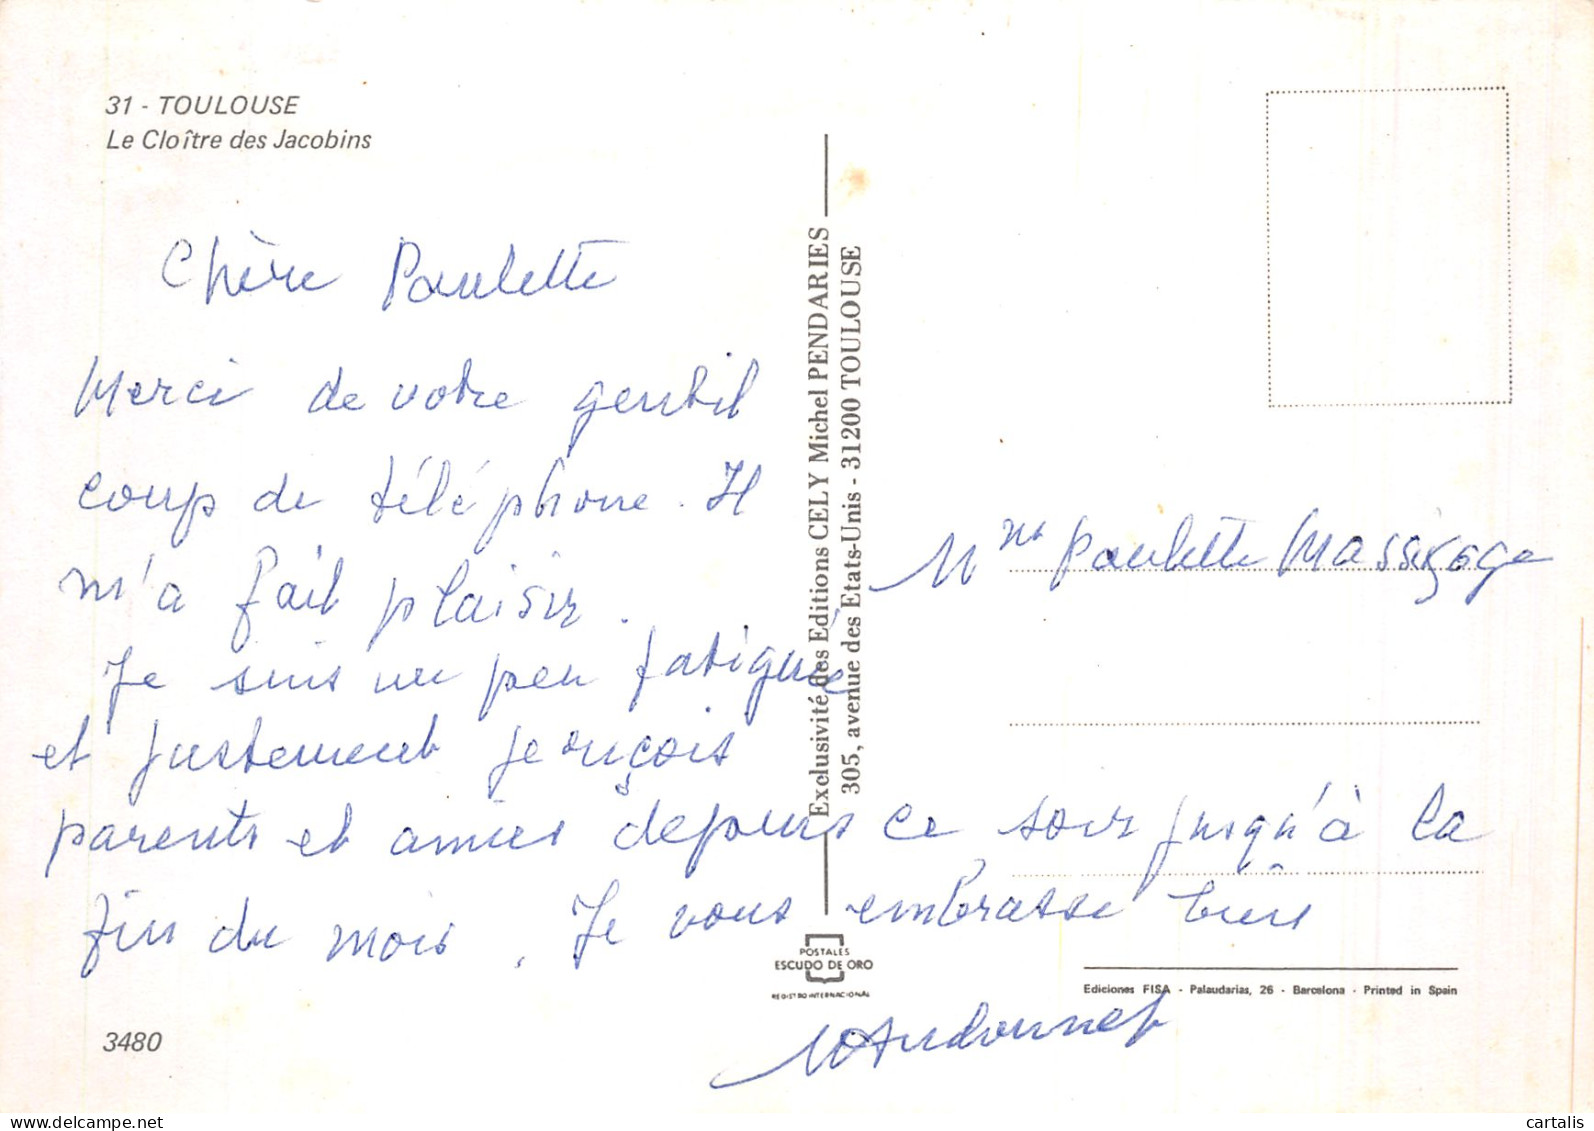 31 - TOULOUSE
Le Cloître des Jacobins
Chère Paulette
Merci de votre gentil
coup de téléphone. Il
m'a fait plaisir.
Je suis un peu fatiguée
et justement je reçois
parents et amies depuis ce soir jusqu'à la
fin du mois. Je vous embrasse bien
Mme Paulette
Exclusivité des Editions CELY Michel PENDARIES
305, avenue des Etats-Unis - 31200 TOULOUSE
POSTALES
ESCUDO DE ORO
REGISTRO INTERNACIONAL
Ediciones FISA - Palaudarias, 26 - Barcelona - Printed in Spain
3480
cartalis